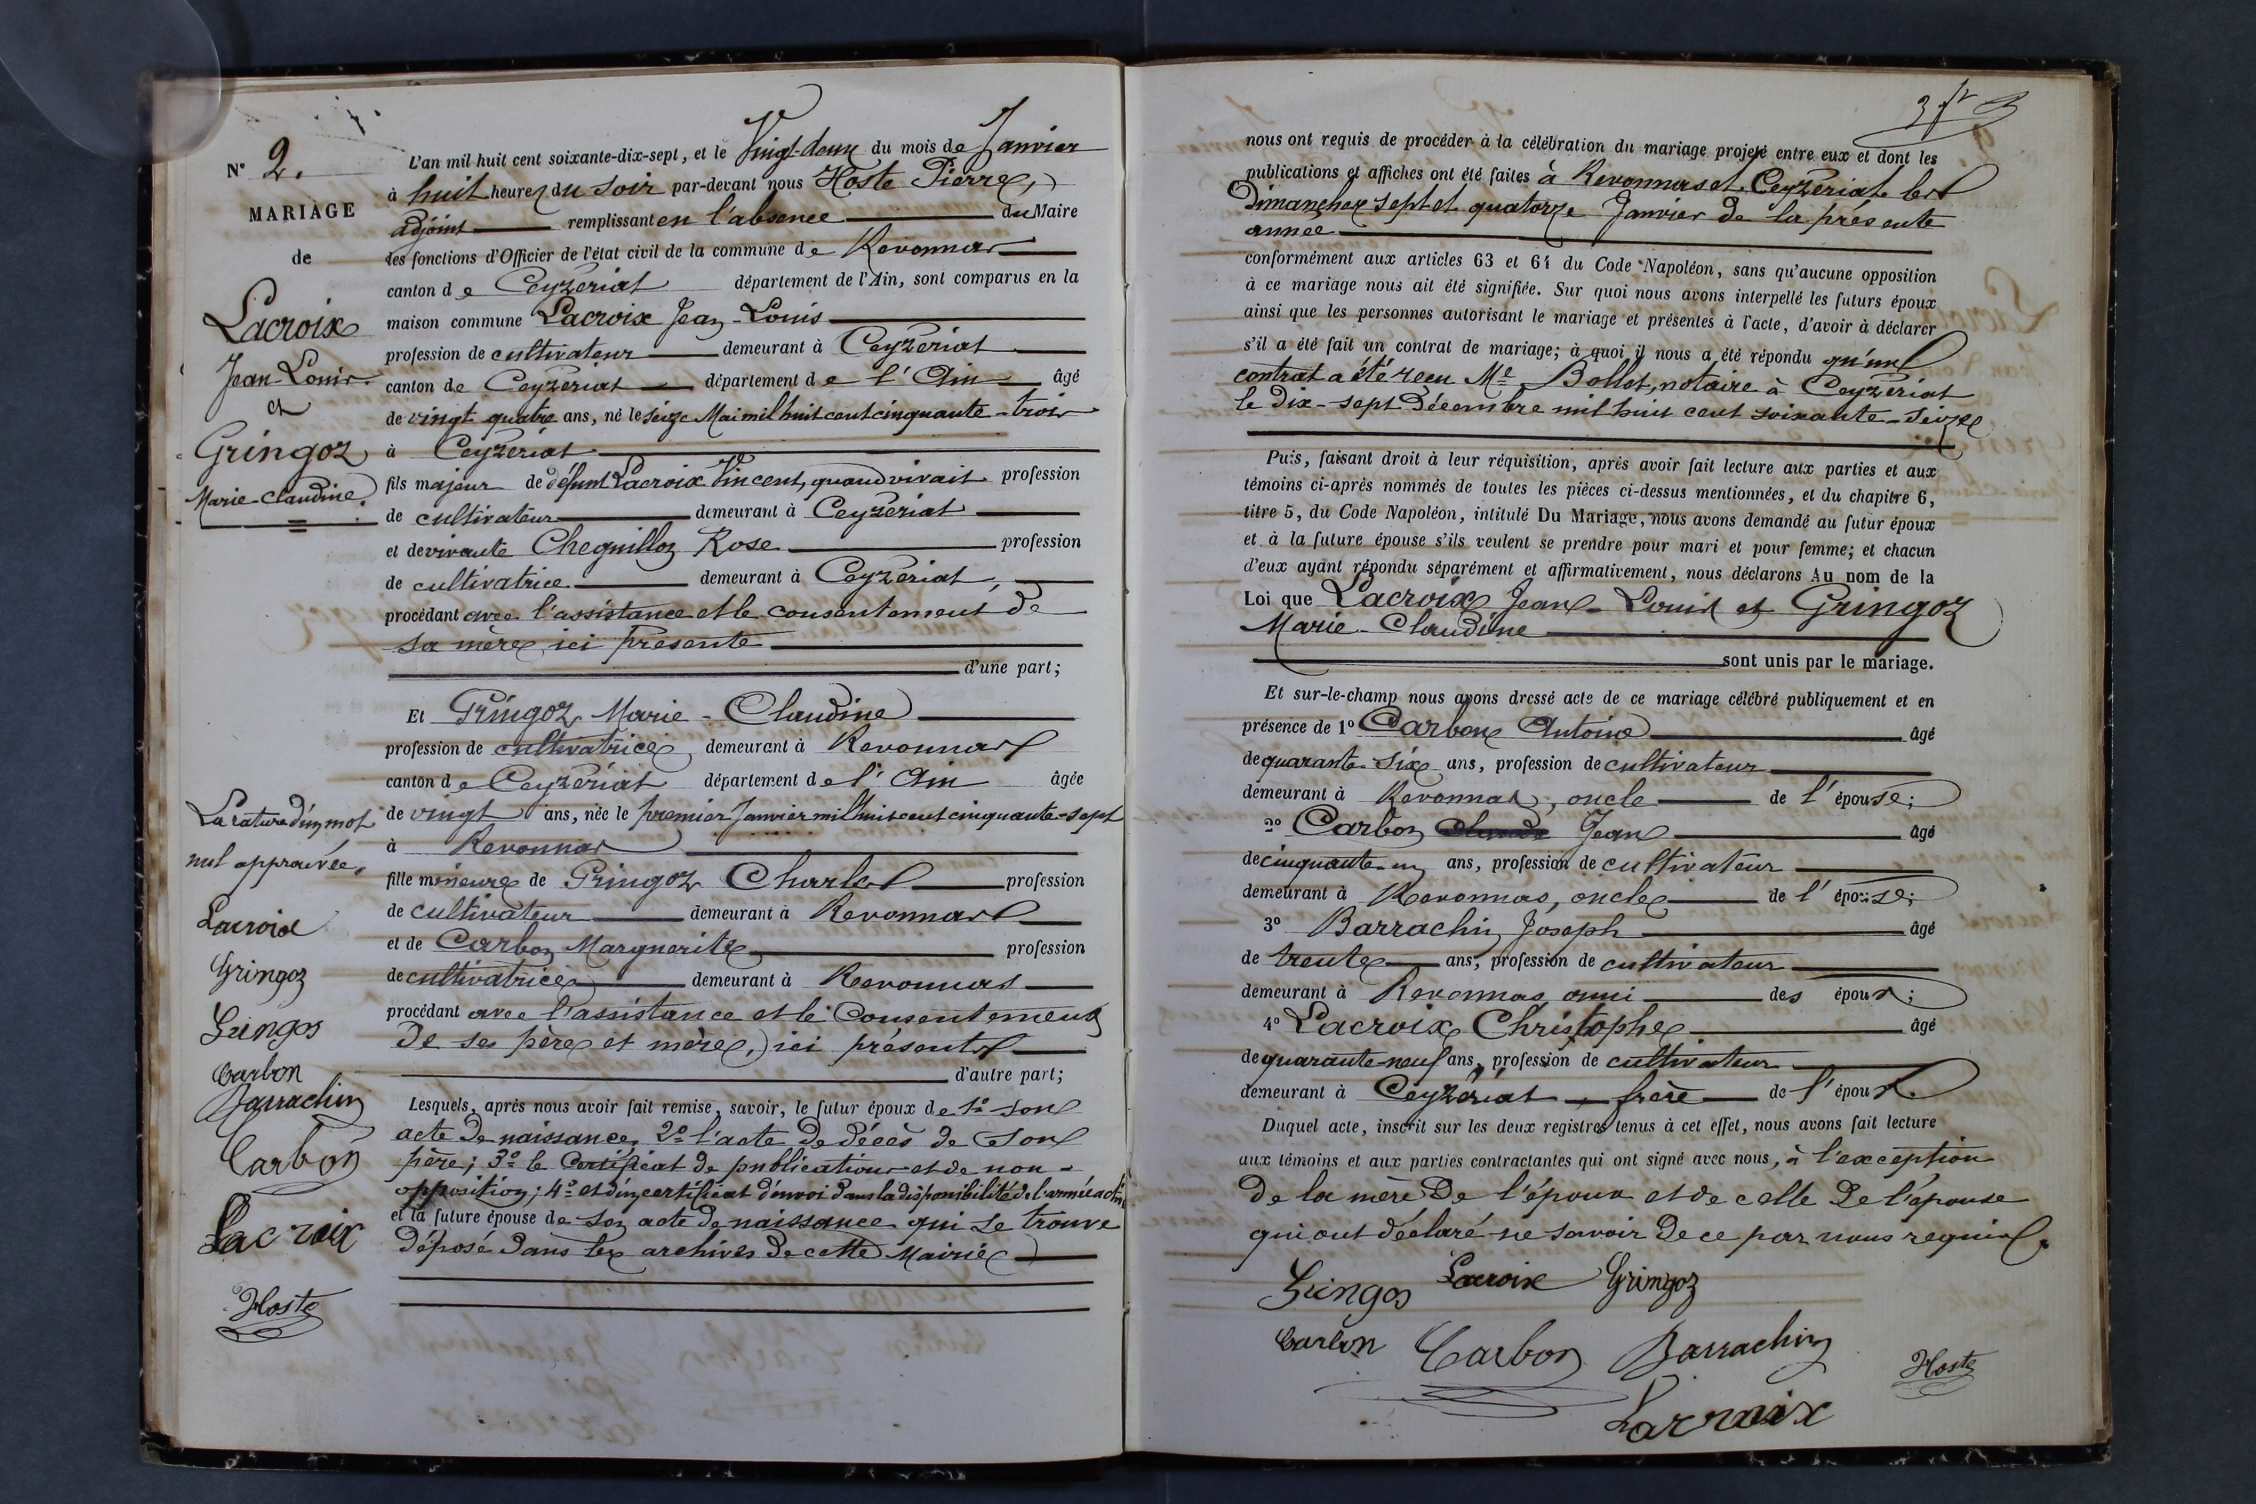 N° 2.
MARIAGE
de
Lacroix
Jean-Louis
et
Gringoz
Marie-Claudine
La rature d'un mot
nul approuvée.
Lacroix
Gringoz
Gringos
Carbon
Barrachin
Carbon
Lacroix
Hoste
L'an mil huit cent soixante-dix-sept, et le Vingt-deux du mois de Janvier
à huit heures du soir par-devant nous Hoste Pierre,
adjoint remplissant en l'absence du Maire
les fonctions d'Officier de l'état civil de la commune de Revonnas
canton de Ceyzériat département de l'Ain, sont comparus en la
maison commune Lacroix Jean-Louis
profession de cultivateur demeurant à Ceyzériat
canton de Ceyzériat département de l'Ain âgé
de vingt quatre ans, né le seize Mai mil huit cent cinquante-trois
à Ceyzériat
fils majeur de défunt Lacroix Vincent, quand vivait profession
de cultivateur demeurant à Ceyzériat
et de vivante Chequilloz Rose profession
de cultivatrice demeurant à Ceyzériat,
procédant avec l'assistance et le consentement de
sa mère, ici présente
d'une part;
Et Gringoz Marie-Claudine
profession de cultivatrice demeurant à Revonnas
canton de Ceyzériat département de l'Ain âgée
de vingt ans, née le premier Janvier mil huit cent cinquante-sept
à Revonnas
fille mineure de Gringoz Charles profession
de cultivateur demeurant à Revonnas
et de Carbon Marguerite profession
de cultivatrice demeurant à Revonnas
procédant avec l'assistance et le Consentement
de ses père et mère, ici présents
d'autre part;
Lesquels, après nous avoir fait remise, savoir, le futur époux de 1° son
acte de naissance, 2° l'acte de décès de son
père; 3° le Certificat de publication et de non-
opposition; 4° et d'un certificat d'envoi dans la disponibilité de l'armée active
et la future épouse de son acte de naissance qui se trouve
déposé dans les archives de cette Mairie
3
nous ont requis de procéder à la célébration du mariage projeté entre eux et dont les
publications et affiches ont été faites à Revonnas et Ceyzériat les
Dimanches sept et quatorze Janvier de la présente
année
conformément aux articles 63 et 64 du Code Napoléon, sans qu'aucune opposition
à ce mariage nous ait été signifiée. Sur quoi nous avons interpellé les futurs époux
ainsi que les personnes autorisant le mariage et présentes à l'acte, d'avoir à déclarer
s'il a été fait un contrat de mariage; à quoi il nous a été répondu qu'un
contrat a été reçu Me Bollot, notaire à Ceyzériat
le dix-sept Décembre mil huit cent soixante-seize
Puis, faisant droit à leur réquisition, après avoir fait lecture aux parties et aux
témoins ci-après nommés de toutes les pièces ci-dessus mentionnées, et du chapitre 6,
titre 5, du Code Napoléon, intitulé Du Mariage, nous avons demandé au futur époux
et à la future épouse s'ils veulent se prendre pour mari et pour femme; et chacun
d'eux ayant répondu séparément et affirmativement, nous déclarons Au nom de la
Loi que Lacroix Jean-Louis et Gringoz
Marie-Claudine
sont unis par le mariage.
Et sur-le-champ nous avons dressé acte de ce mariage célébré publiquement et en
présence de 1° Carbon Antoine âgé
de quarante-six ans, profession de cultivateur
demeurant à Revonnas, oncle de l'épouse;
2° Carbon Jean âgé
de cinquante-un ans, profession de cultivateur
demeurant à Revonnas, oncle de l'épouse;
3° Barrachin Joseph âgé
de trente ans, profession de cultivateur
demeurant à Revonnas, ami des époux;
4° Lacroix Christophe âgé
de quarante-neuf ans, profession de cultivateur
demeurant à Ceyzériat, frère de l'époux.
Duquel acte, inscrit sur les deux registres tenus à cet effet, nous avons fait lecture
aux témoins et aux parties contractantes qui ont signé avec nous, à l'exception
de la mère de l'époux et de celle de l'épouse
qui ont déclaré ne savoir de ce par nous requis.
Gringos Lacroix Gringoz
Carbon Carbon Barrachin Hoste
Lacroix